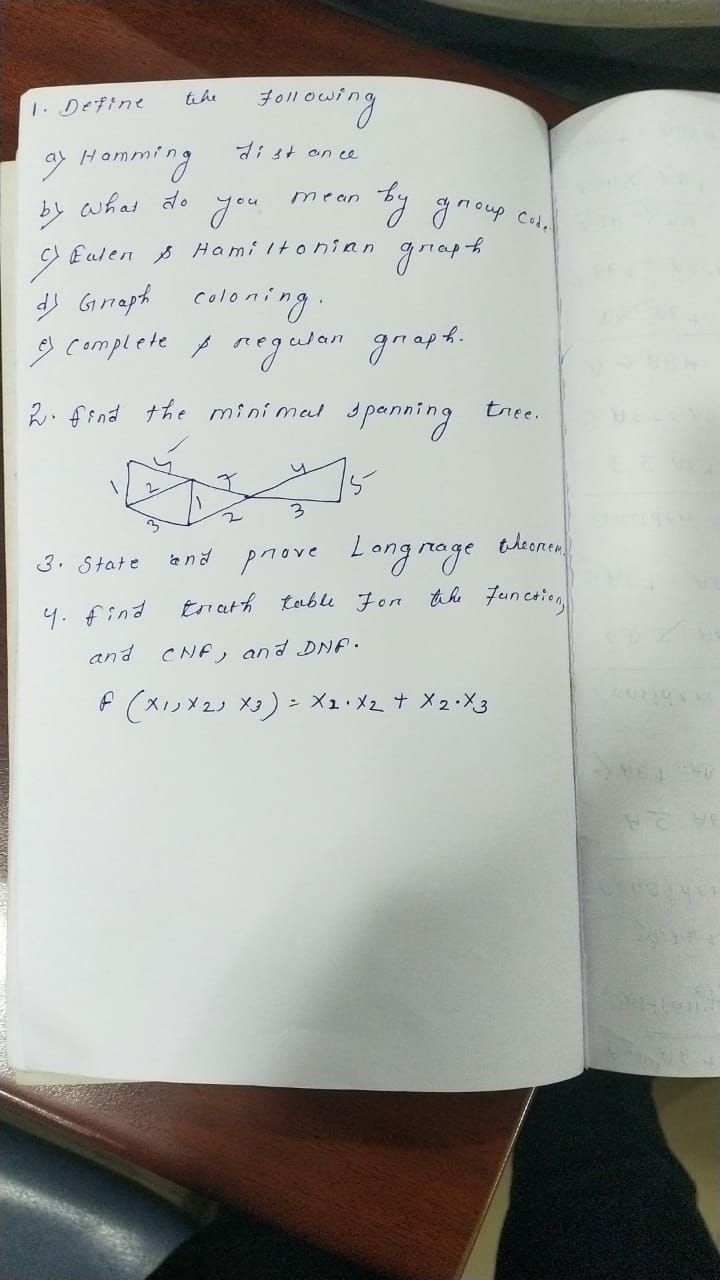 1. Define the following
a) Hamming distance
b) what do you mean by group code
c) Euler & Hamiltonian graph
d) Graph coloring.
e) complete & regular graph.
2. find the minimal spanning tree.
4 7 4
1 2 1 5
3 2 3
3. State and prove Langrage theorem.
4. find truth table for the function,
and CNF, and DNF.
f (x1, x2, x3) = x1.x2 + x2.x3